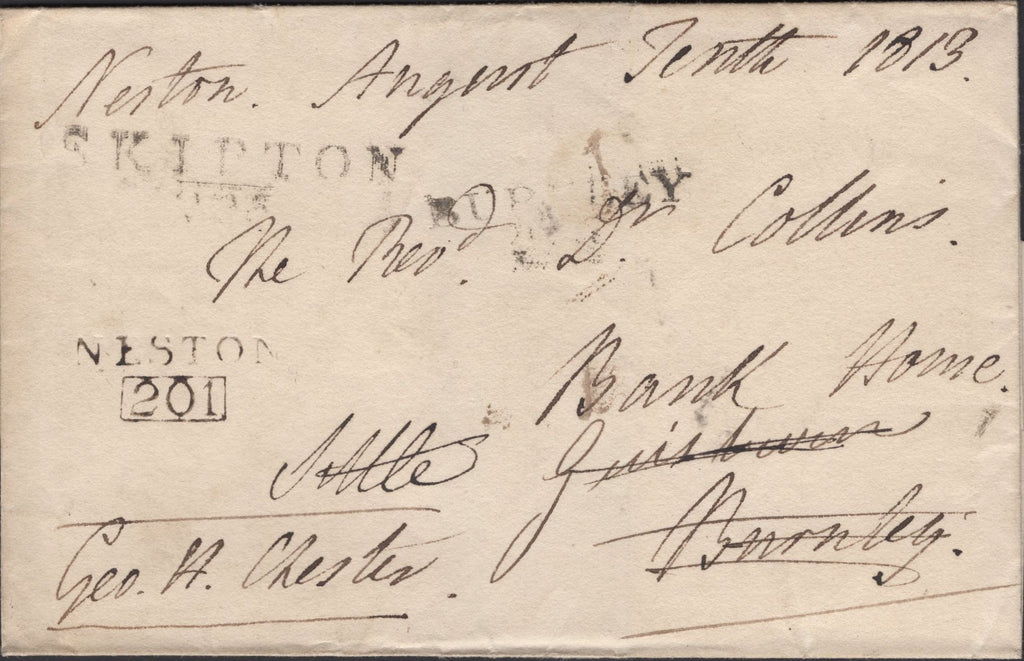 Neston. August Tenth 1813.
SKIPTON
BURNLEY
The Revd. Dr. Collins.
NESTON
201
Bank House.
Settle
Gisburn
Burnley.
Geo. H. Chester.